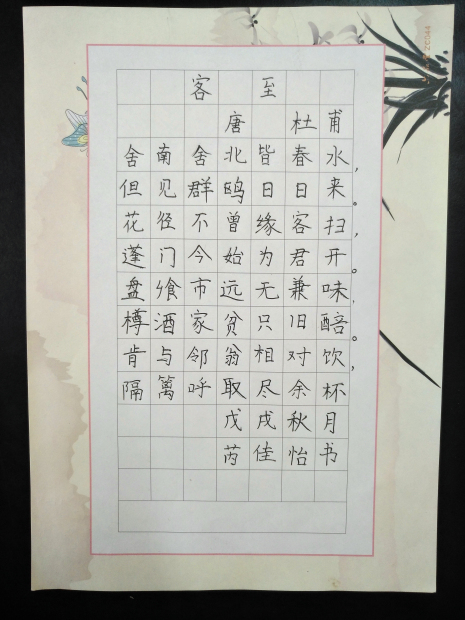 客至
唐 杜甫
舍南舍北皆春水，
但见群鸥日日来。
花径不曾缘客扫，
蓬门今始为君开。
盘飧市远无兼味，
樽酒家贫只旧醅。
肯与邻翁相对饮，
隔篱呼取尽余杯
戊戌秋月
芮佳怡书